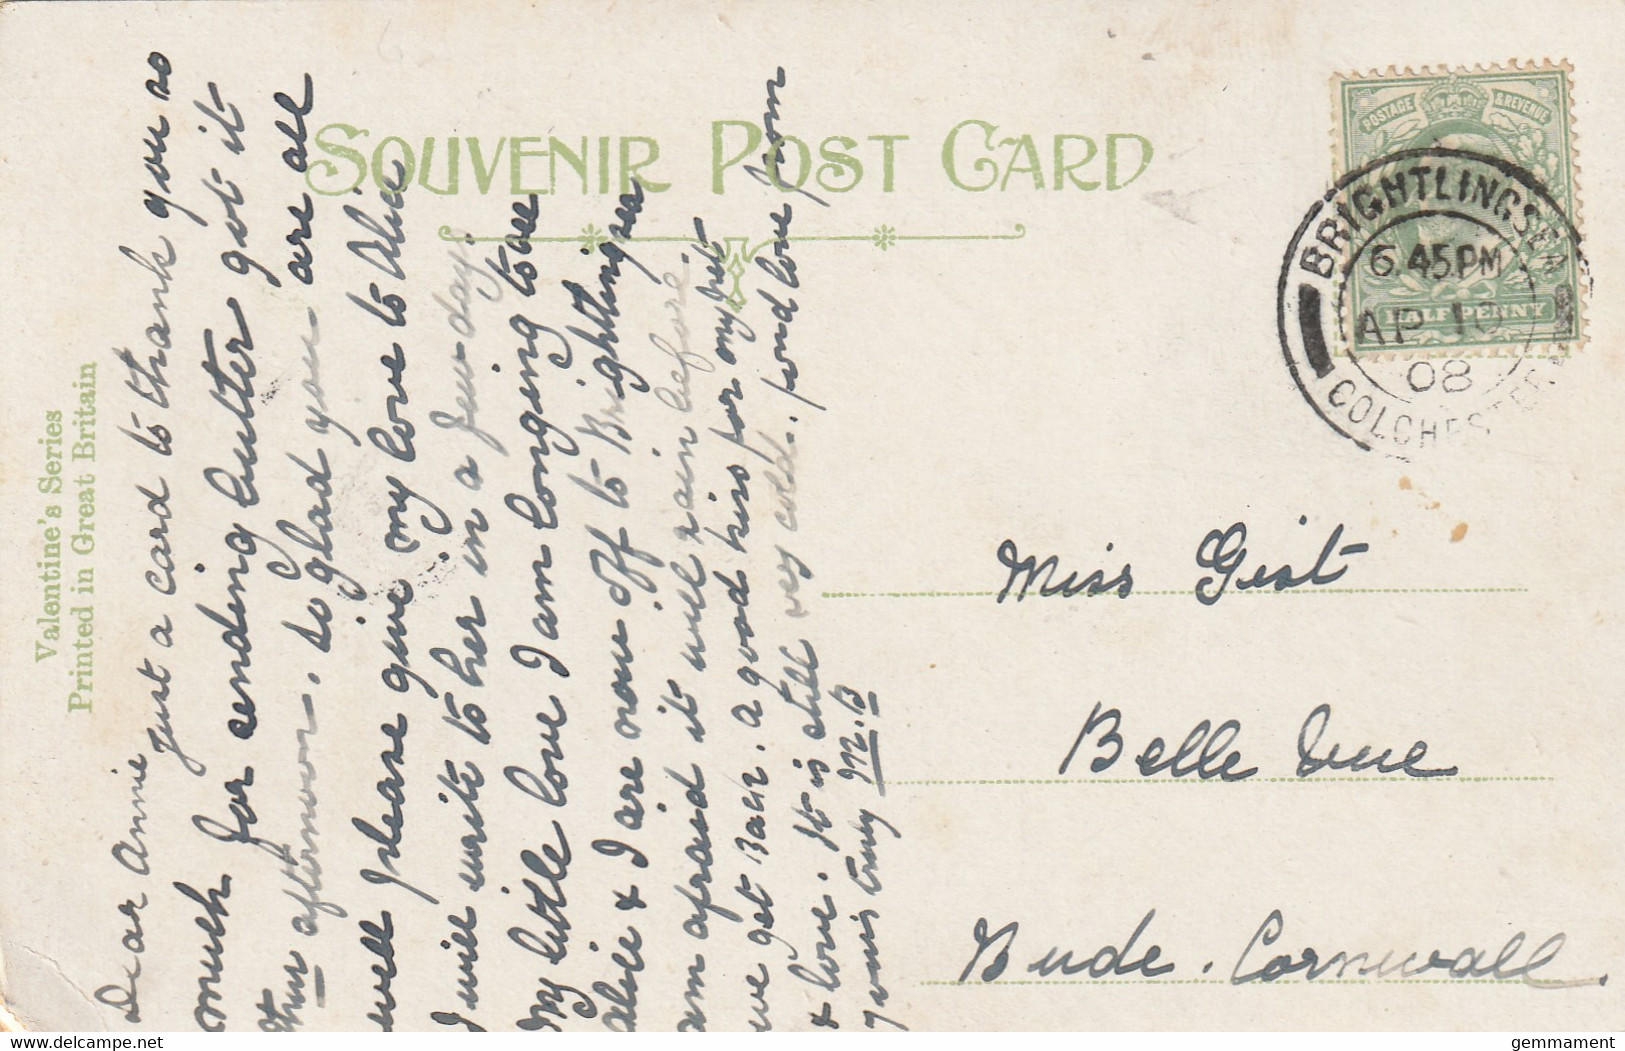 SOUVENIR POST CARD
Valentine's Series
Printed in Great Britain
POSTAGE & REVENUE
HALFPENNY
BRIGHTLINGSEA
6.45PM
AP 10
08
COLCHESTER
Miss Gist
Belle Vue
Bude. Cornwall.
Dear Annie
Just a card to thank you so
much for sending butter got it
this afternoon. So glad you are all
well please give my love to Alice
I will write to her in a few days.
My little love I am longing to see
Alie & I are now off to Brightlingsea
am afraid it will rain before
we get back. a good kiss for my pet
& love. It is still very cold. fond love from
yours truly M.B
gemmament